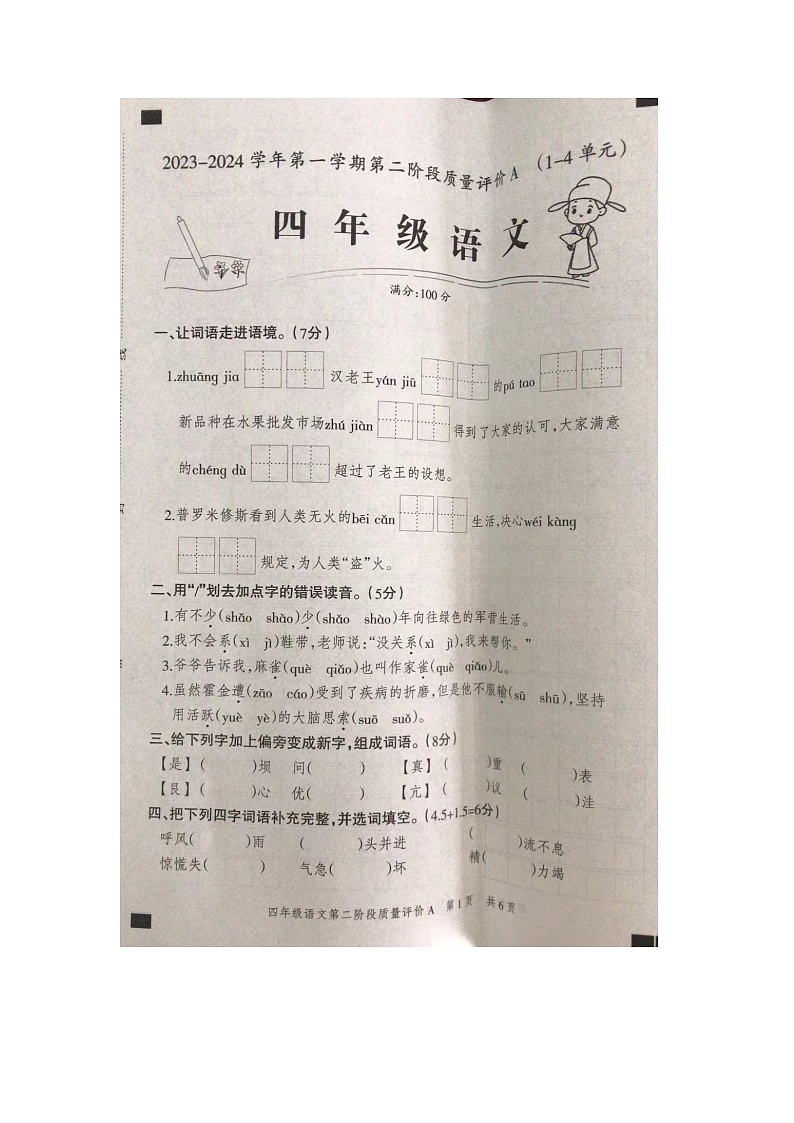 2023-2024 学年第一学期第二阶段质量评价A （1-4 单元）
四年级语文
满分:100 分
一、让词语走进语境。(7分)
1.zhuāng jia 汉老王yán jiū 的pú tao
新品种在水果批发市场zhú jiàn 得到了大家的认可,大家满意
的chéng dù 超过了老王的设想。
2.普罗米修斯看到人类无火的bēi cǎn 生活,决心wéi kàng
规定,为人类“盗”火。
二、用“/”划去加点字的错误读音。(5分)
1.有不少(shǎo shào)少(shǎo shào)年向往绿色的军营生活。
2.我不会系(xì jì)鞋带,老师说:“没关系(xì jì),我来帮你。”
3.爷爷告诉我,麻雀(què qiǎo)也叫作家雀(què qiǎo)儿。
4.虽然霍金遭(zāo cáo)受到了疾病的折磨,但是他不服输(sū shū),坚持
用活跃(yuè yè)的大脑思索(suō suǒ)。
三、给下列字加上偏旁变成新字,组成词语。(8分)
【是】( )坝 问( ) 【真】( )重 ( )表
【艮】( )心 优( ) 【亢】( )议 ( )洼
四、把下列四字词语补充完整,并选词填空。(4.5+1.5=6分)
呼风( )雨 ( )头并进 ( )流不息
惊慌失( ) 气急( )坏 精( )力竭
四年级语文第二阶段质量评价A 第1页 共6页